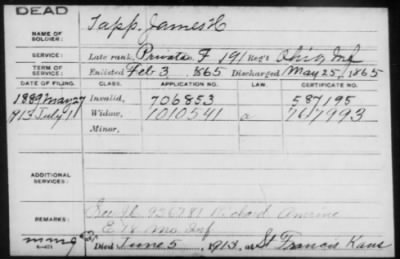 DEAD
NAME OF SOLDIER: Tapp. James H
SERVICE: Late rank, Private. F 191 Reg't Ohio Inf
TERM OF SERVICE: Enlisted Feb 3 1865 Discharged May 25, 1865
DATE OF FILING. CLASS. APPLICATION NO. LAW. CERTIFICATE NO.
1889 May 27 Invalid, 706853 587195
1913 July 1 Widow, 1010541 a 767993
Minor,
ADDITIONAL SERVICES:
REMARKS: 956781 Richard
E 18 Mo Inf
Died June 5, 1913, at St Francis Kans
6-421